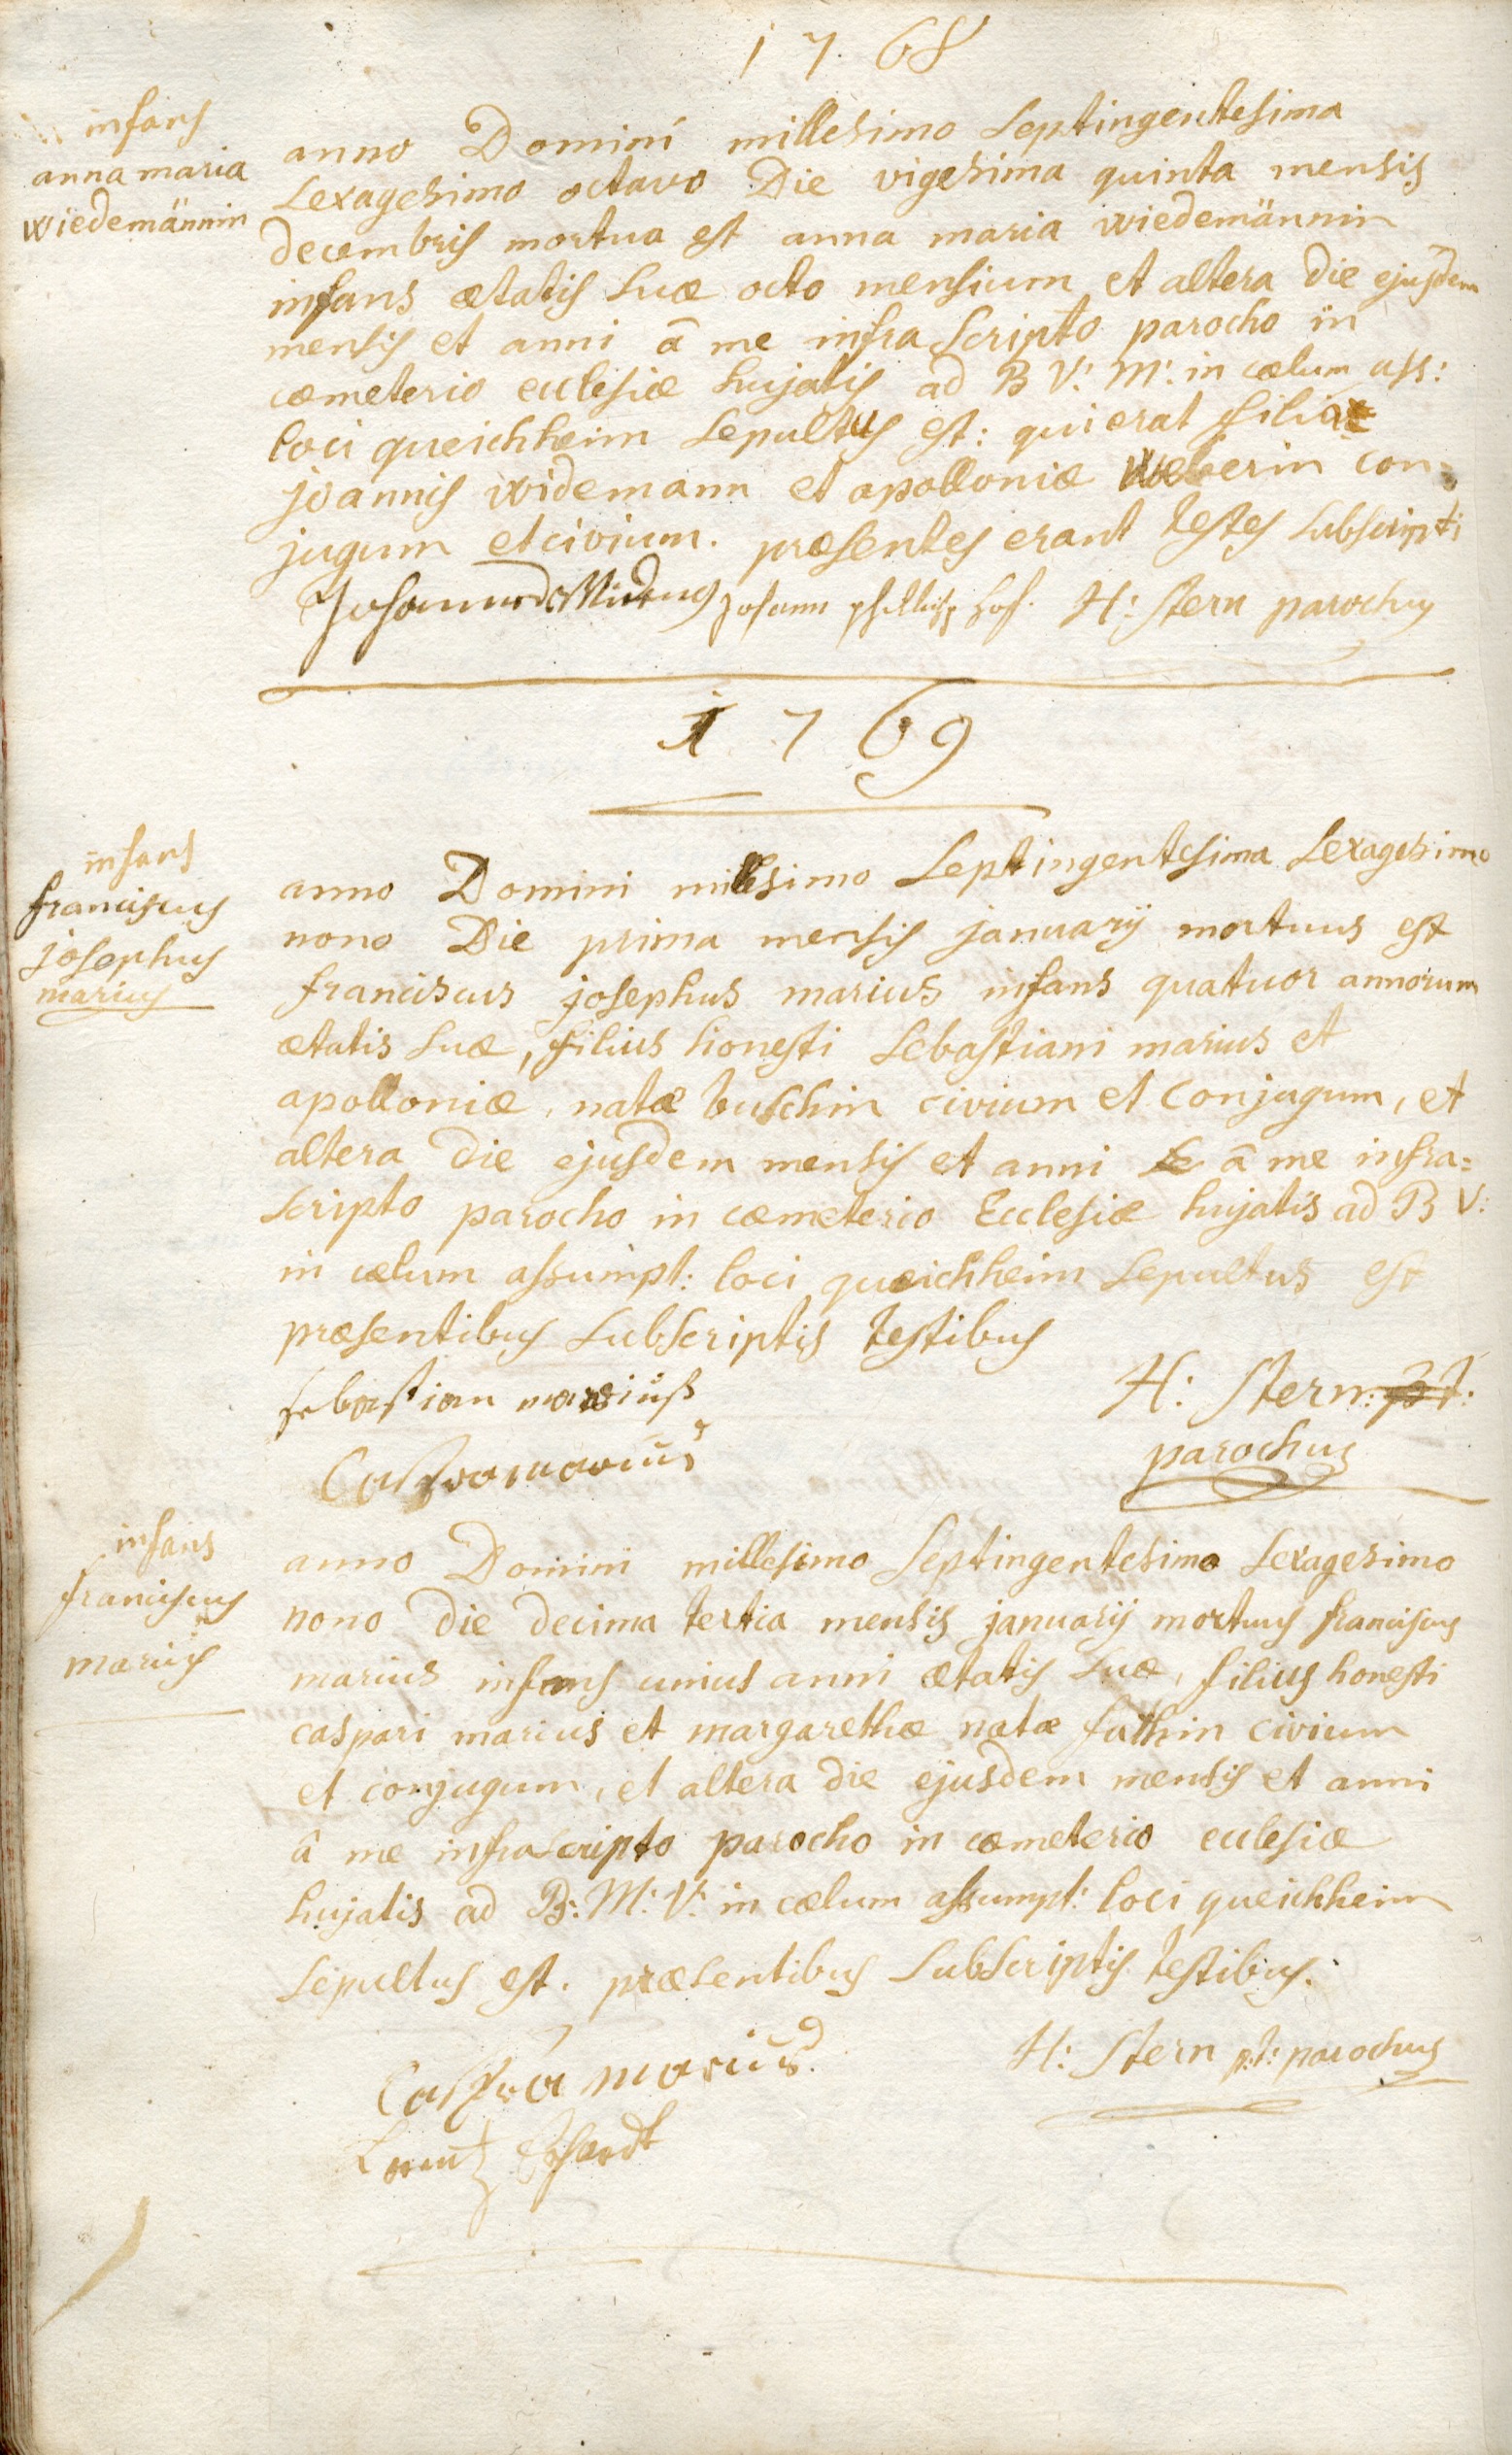 1768
infans
anna maria
wiedemännin
anno Domini millesimo septingentesima
sexagesimo octavo Die vigesima quinta mensis
decembris mortua est anna maria wiedemännin
infans ætatis suæ octo mensium et altera die ejusdem
mensis et anni â me infra scripto parocho in
cæmeterio ecclesiæ hujatis ad B V: M: in cælum ass:
loci queichheim sepultus est: qui erat filia
joannis widemann et apolloniæ weberin con=
jugum et civium. præsentes erant testes subscripti
Johann phillipp hof. H: Stern parochus
1769
infans
franciscus
josephus
marius
anno Domini millesimo septingentesima sexagesimo
nono Die prima mensis januarij mortuus est
franciscus josephus marius infans quatuor annorum
ætatis suæ, filius honesti sebastiani marius et
apolloniæ, natæ buschin civium et conjugum, et
altera die ejusdem mensis et anni â me infra=
scripto parocho in cæmeterio Ecclesiæ hujatis ad B V:
in cælum assumpt: loci queichheim sepultus est
præsentibus subscriptis testibus
sebastian mariuß
H: Stern: p t:
parochus
Caspar marius
infans
franciscus
marius
anno Domini millesimo septingentesimo sexagesimo
nono die decima tertia mensis januarij mortuus franciscus
marius infans unius anni ætatis suæ, filius honesti
caspari marius et margarethæ natæ fathin civium
et conjugum, et altera die ejusdem mensis et anni
â me infrascripto parocho in cæmeterio ecclesiæ
hujatis ad B: M: V: in cælum assumpt: loci queichheim
sepultus est. præsentibus subscriptis testibus.
Caspar marius
H: Stern p:t: parochus